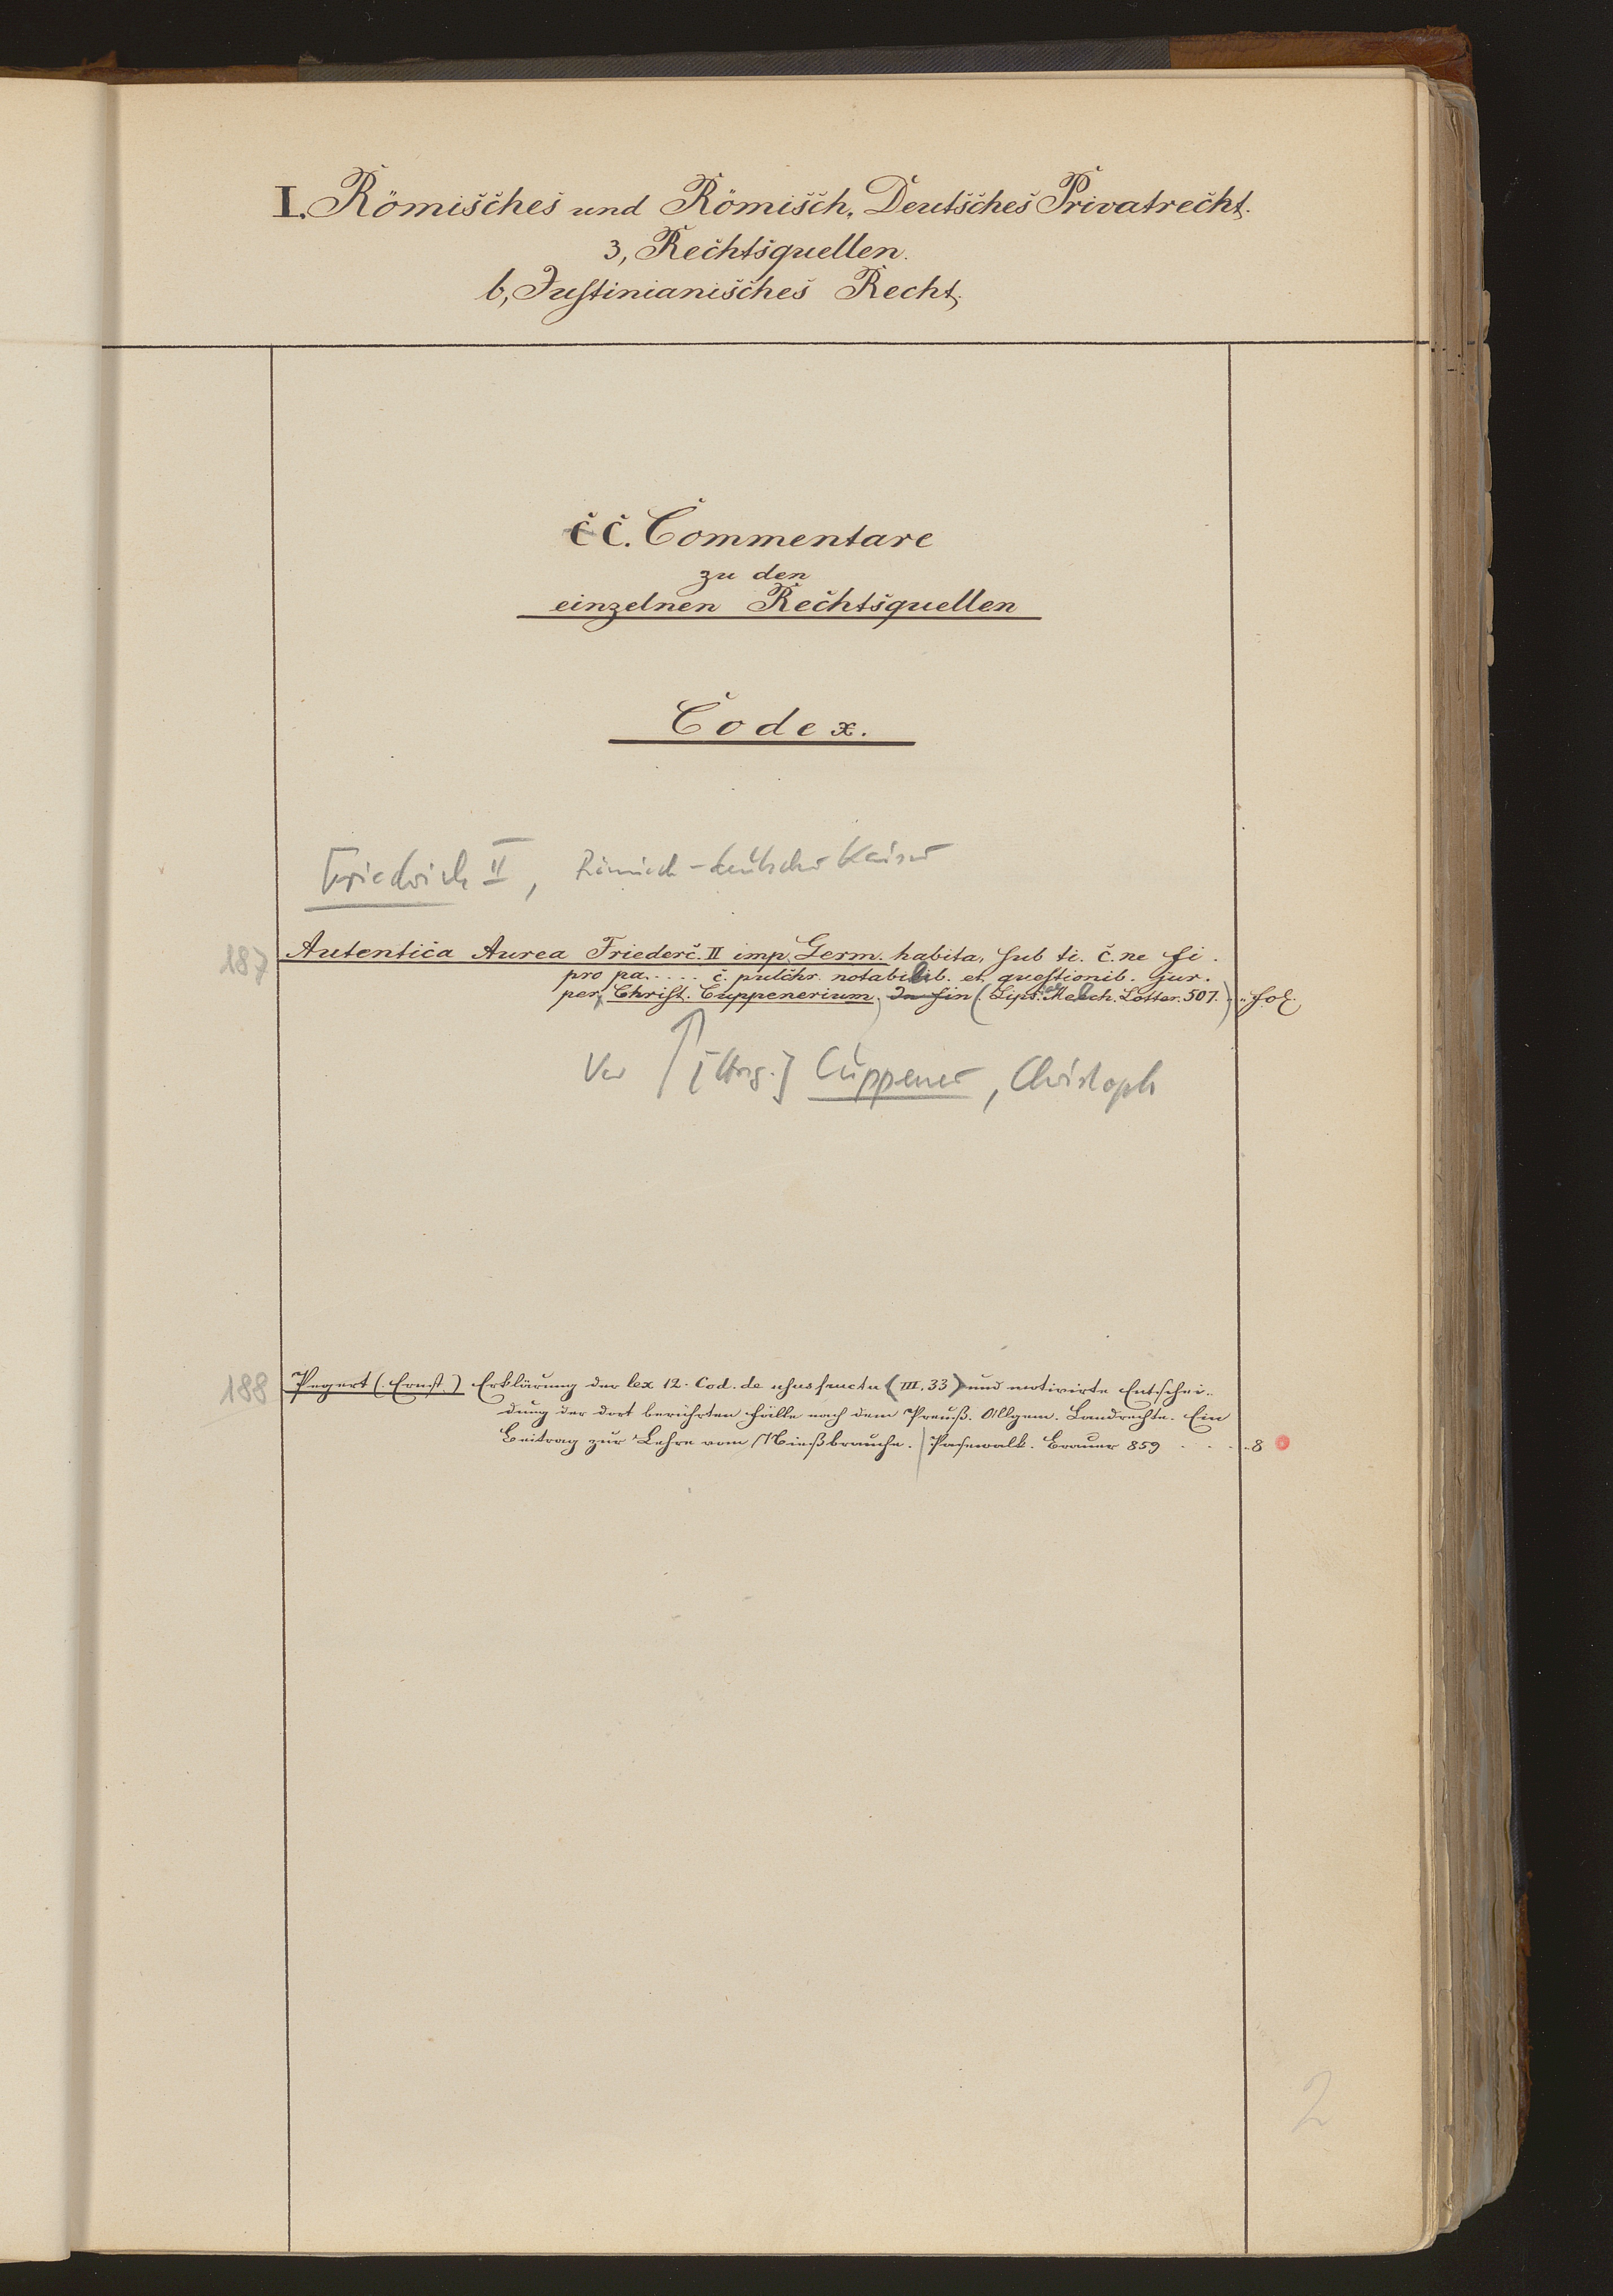 I. Römisches und Römisch, Deutsches Privatrecht.
3, Rechtsquellen.
b, Justinianisches Recht.
c c. Commentare
zu den
einzelnen Rechtsquellen
Codex.
Friedrich II, Römisch-deutscher Kaiser
187 Autentica Aurea Friederc. II imp. Germ. habita, sub ti. c. ne fi.
pro pa..... c. pulchr. notabilib. et questionib. jur.
per Christ. Cuppenerium. In fin (Lips. Melch. Lotter. 507.) .. fol.
Ver [Hrsg.] Cuppener, Christoph
188 Pegert (Ernst.) Erklärung der lex 12. Cod. de usufructu (III. 33) und motivirte Entschei-
dung der dort berührten Fälle nach dem Preuß. Allgem. Landrechte. Ein
Beitrag zur Lehre vom Nießbrauche. Pasewalk. Brauer 859 . . . . 8
2